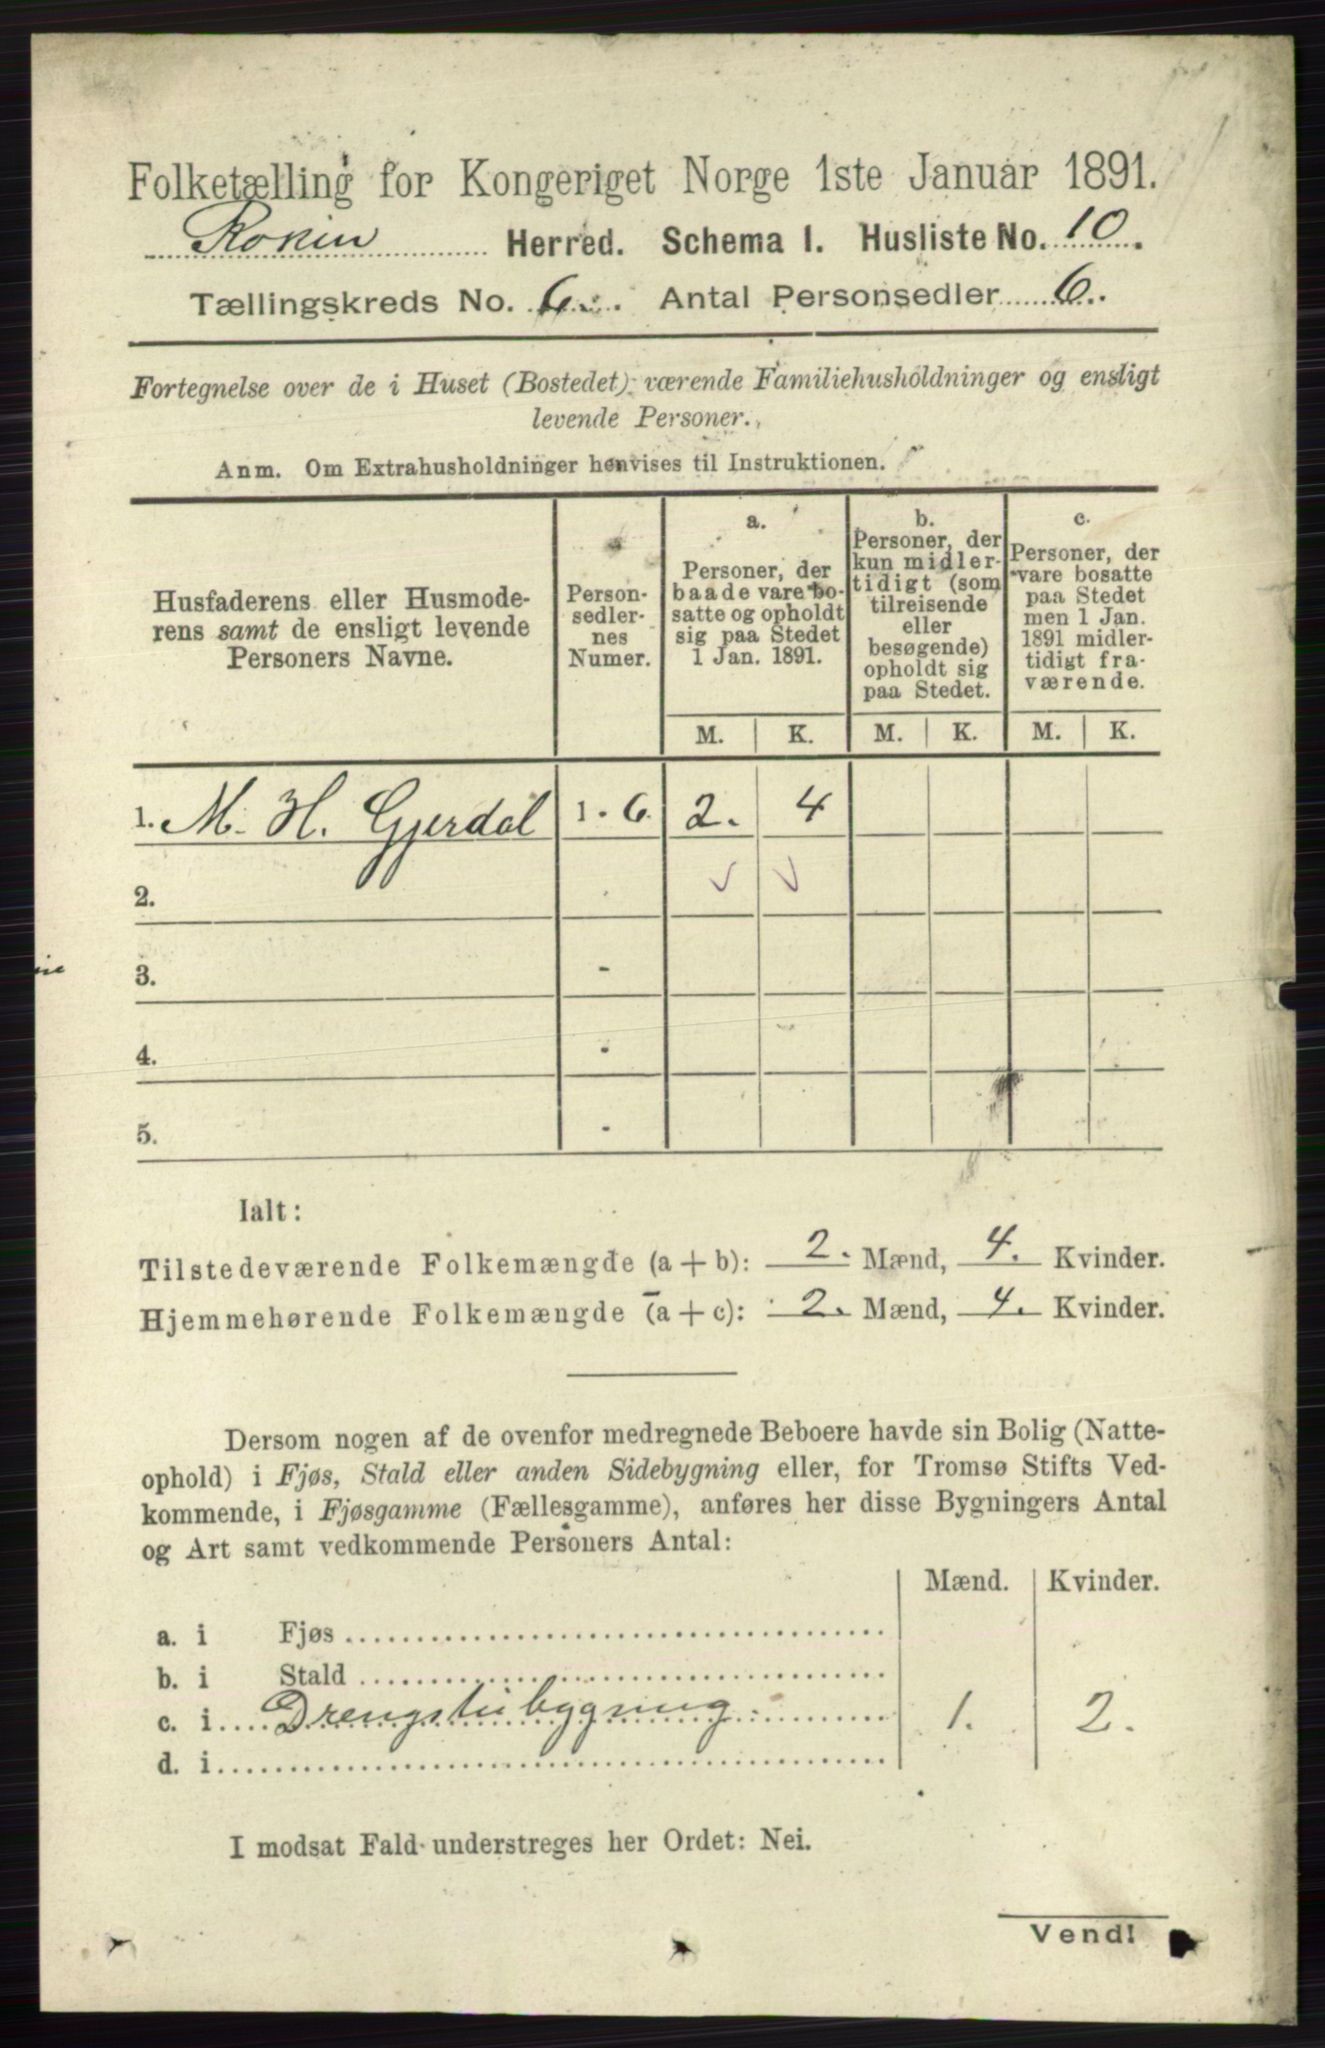 Folketælling for Kongeriget Norge 1ste Januar 1891.
Røkin Herred. Schema I. Husliste No. 10.
Tællingskreds No. 6. Antal Personsedler 6.
Fortegnelse over de i Huset (Bostedet) værende Familiehusholdninger og ensligt
levende Personer.
Anm. Om Extrahusholdninger henvises til Instruktionen.
Husfaderens eller Husmode-
rens samt de ensligt levende
Personers Navne.
Person-
sedler-
nes
Numer.
a.
Personer, der
baade vare bo-
satte og opholdt
sig paa Stedet
1 Jan. 1891.
b.
Personer, der
kun midler-
tidigt (som
tilreisende
eller
besøgende)
opholdt sig
paa Stedet.
c.
Personer, der
vare bosatte
paa Stedet
men 1 Jan.
1891 midler-
tidigt fra-
værende.
M. K. M. K. M. K.
1. M. H. Gjerdal 1 - 6. 2. 4
2. -
3. -
4. -
5. -
Ialt:
Tilstedeværende Folkemængde (a + b): 2. Mænd, 4. Kvinder.
Hjemmehørende Folkemængde (a + c): 2. Mænd, 4. Kvinder.
Dersom nogen af de ovenfor medregnede Beboere havde sin Bolig (Natte-
ophold) i Fjøs, Stald eller anden Sidebygning eller, for Tromsø Stifts Ved-
kommende, i Fjøsgamme (Fællesgamme), anføres her disse Bygningers Antal
og Art samt vedkommende Personers Antal:
Mænd. Kvinder.
a. i Fjøs
b. i Stald
c. i Drengstubygning 1. 2.
d. i
I modsat Fald understreges her Ordet: Nei.
Vend!